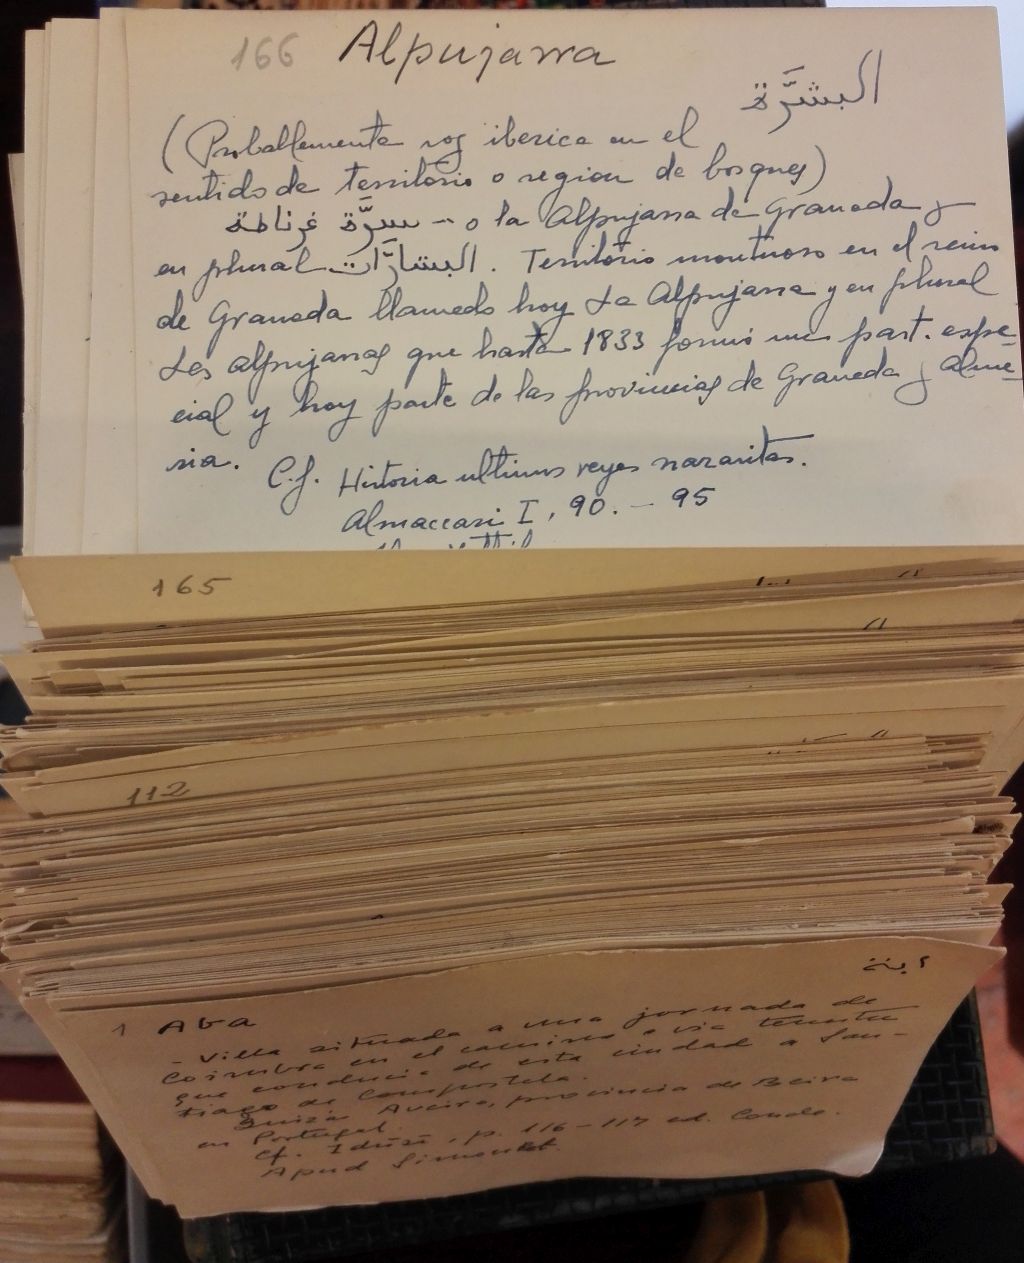 166 Alpujarra
البشرَّة
(Proballemente voz iberica en el
sentido de territorio o region de bosques)
بشرَّة غرناطة - o la Alpujarra de Granada y
en plural البشارَّات. Territorio montuoso en el reino
de Granada llamado hoy La Alpujarra y en plural
Las alpujarras que hasta 1833 formó una part. espe-
cial y hoy parte de las provincias de Granada y Alme-
ria.
C.f. Historia ultimos reyes nazaritas.
Almaccari I, 90. - 95
165
112
1 Aba
- Villa situada a una jornada de
Coimbra en el camino o via terrestre
que conducia de esta ciudad a San-
tiago de Compostela.
Quizá Aveiro, provincia de Beira
en Portugal.
Cf. Idrisi, p. 116-117 ed. Conde.
Apud Simonet